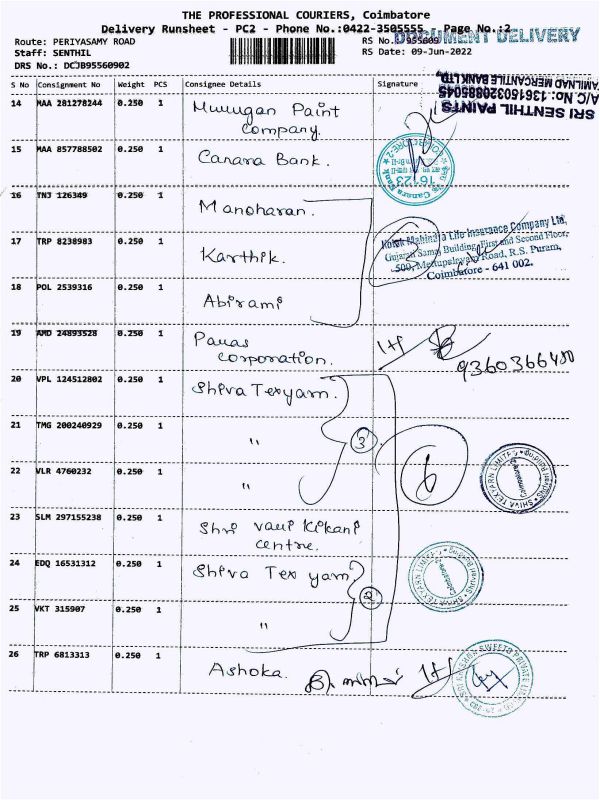 THE PROFESSIONAL COURIERS, Coimbatore
Delivery Runsheet - PC2 - Phone No.:0422-3505555 - Page No.:2
DOCUMENT DELIVERY
Route: PERIYASAMY ROAD
RS No.: 955609
Staff: SENTHIL
RS Date: 09-Jun-2022
DRS No.: DCJB95560902
S No Consignment No Weight PCS Consignee Details Signature
SRI SENTHIL PAINTS
A/C No: 136150320885045
TAMILNAD MERCANTILE BANK LTD
14 MAA 281278244 0.250 1 Murugan Paint
Company.
15 MAA 857788502 0.250 1 Canara Bank.
Canara Bank
16123
16 TNJ 126349 0.250 1 Manoharan.
17 TRP 8238983 0.250 1 Karthik.
3
Kotak Mahindra Life Insurance Company Ltd,
Gujarati Samaj Building, First and Second Floor,
500, Mettupalayam Road, R.S. Puram,
Coimbatore - 641 002.
18 POL 2539316 0.250 1 Abirami
19 AMD 24893528 0.250 1 Pavas
Corporation.
9360366480
20 VPL 124512802 0.250 1 Shiva Texyarn.
21 TMG 200240929 0.250 1 "
3
6
22 VLR 4760232 0.250 1 "
SHIVA TEXYARN LIMITED
23 SLM 297155238 0.250 1 Shri Vauj Kikani
centre.
24 EDQ 16531312 0.250 1 Shiva Tex yarn
2
SHIVA TEXYARN LIMITED
25 VKT 315907 0.250 1 "
26 TRP 6813313 0.250 1 Ashoka.